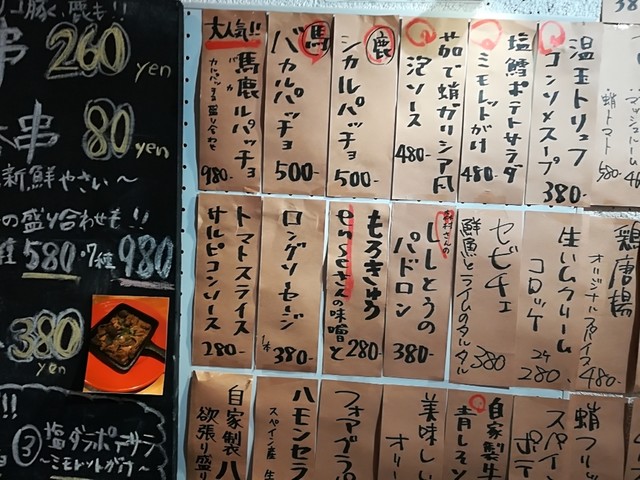 豚く、鹿も!!
串 260 yen
串 80 yen
新鮮やさい〜
の盛り合わせも!!
580・7種 980
380 yen
!!
③塩ダラポテサラ
〜ミモレットがけ〜
温玉トリュフ
コンソメスープ
380-
塩鱈ポテトサラダ
ミモレットがけ
480-
茹で蛸ガリシア風
泡ソース
480-
鹿
シカルパッチョ
500-
馬
バカルパッチョ
500-
大人気!!
馬鹿ルパッチョ
バカ
980-
蛸トマト
580-
鶏唐揚
オリジナルスパイス
480-
生ハムクリーム
コロッケ
2ケ
280.
セビチェ
鮮魚とライムのタルタル
380
村さんの
ししとうの
パドロン
380-
もろきゅう
enseさんの味噌と
280-
ロングソーセージ
1本 380-
トマトスライス
サルピコンソース
280-
蛸フリッ
スペイン
ポテ
自家製
青しそソ
美味しい
オリー
フォアグラパ
ハモンセラ
スペイン産 生
自家製ハ
欲張り盛り